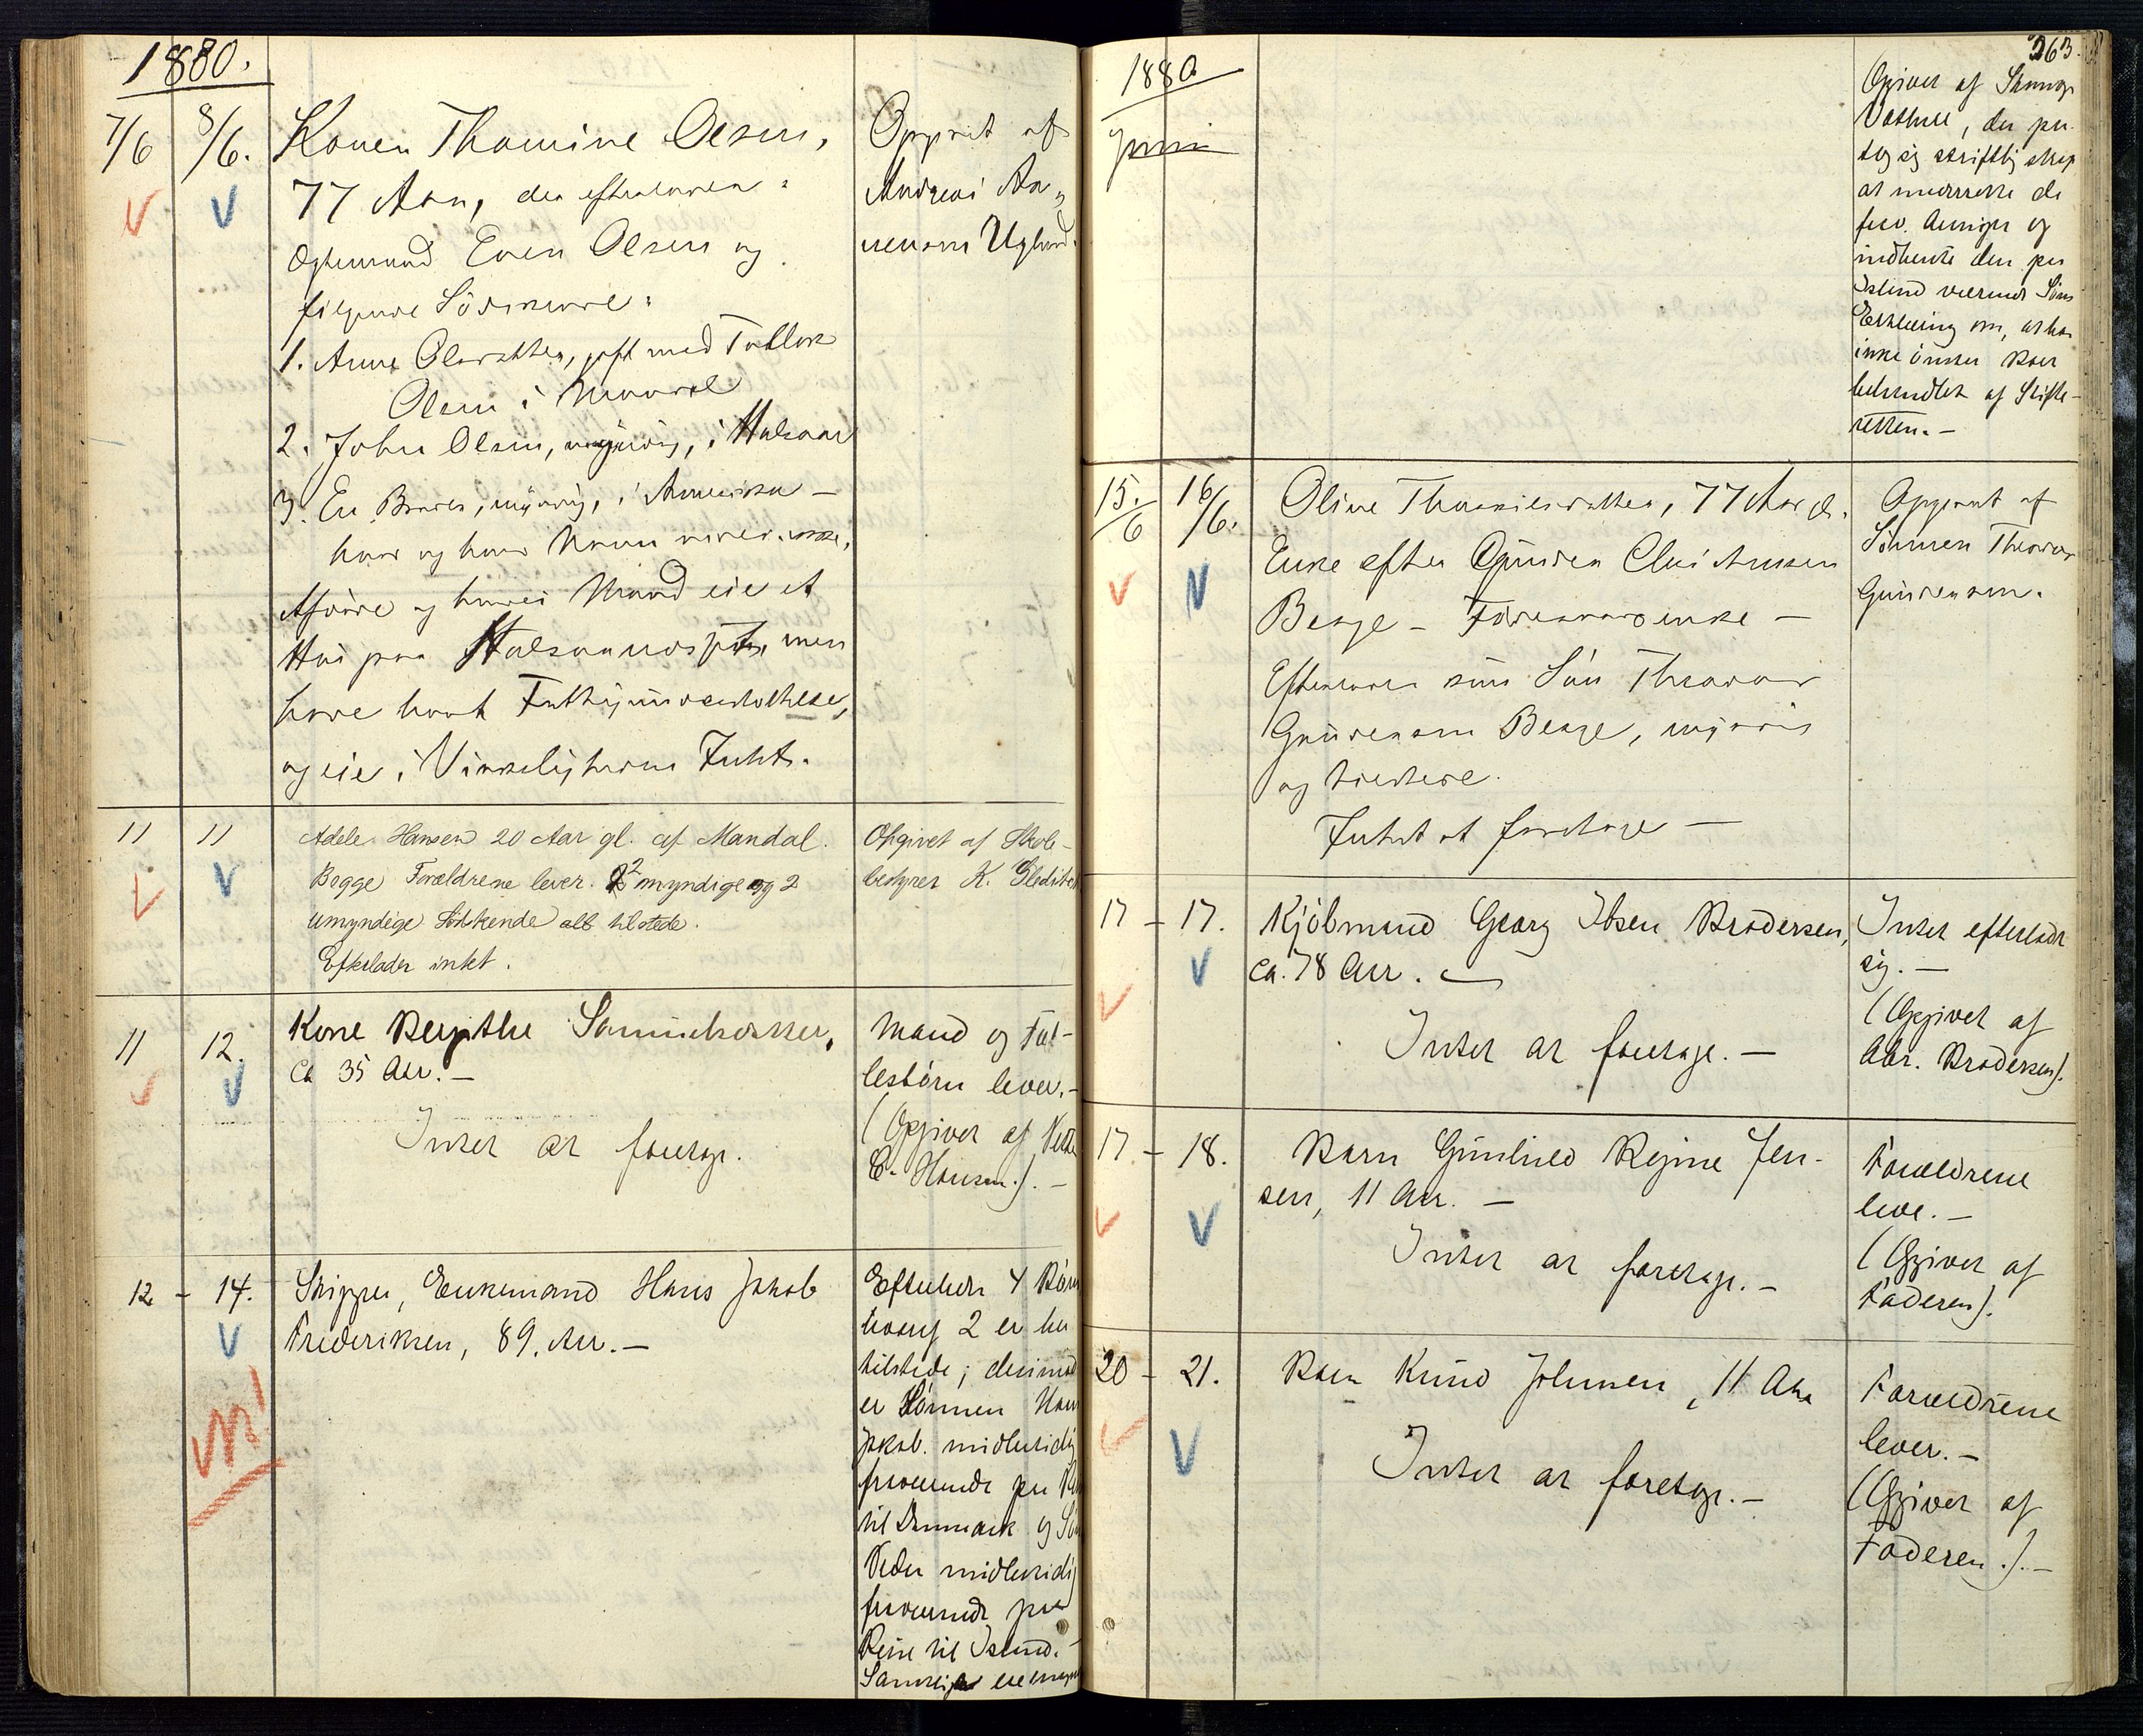 1880.
7/6 8/6. Konen Thomine Olsen,
77 Aar, der efterlader:
Ægtemand Even Olsen og
følgende Södskende:
1. Anne Olsdatter, gift med Tallak
Olsen i Mandal
2. John Olsen, myndig, i Halsaa
3. En Broder, myndig, i Amerika –
hvor og hans Navn vides ikke.
Afdöde og hendes Mand eie et
Hus paa men
have havt Fattigunderstöttelse,
og eie i Virkeligheden Intet.
Opgivet af
Andreas
Ugland.
11 11 Adele Hansen 20 Aar gl. af Mandal.
Begge Forældrene lever. 2 myndige og 2
umyndige Södskende alt tilstede.
Efterlader intet.
Opgivet af Skole-
bestyrer K. Gleditsch
11 12. Kone Berthe Samuelsdatter,
Ca 35 Aar. –
Intet at foretage.
Mand og Fæl-
lesbörn lever. –
(Opgivet af
E. Hansen). –
12 – 14. Skipper, Enkemand Hans Jakob
Frederiksen, 89. Aar. –
Efterlader 4 Börn
hvoraf 2 er her
tilstede; desimod
er Sönnen Hans
Jakob midlertidig
fraværende paa
til Danmark og Sön
Peder midlertidig
fraværende paa
Reise til Island. –
Samtlige ere
1880
Juni
263.
Opgivet af
der paa-
tog sig skriftlig
at underrette de
frav. Arvinger og
indhente den paa
Island værende Söns
Erklæring om, at han
ikke önsker Boet
behandlet af Skifte-
retten. –
15/6 16/6. Oline Thorkildsdatter, 77 Aar gl.
Enke efter Gunder Christensen
Berge – Föderaadsenke –
Efterlader kun Sön Thorvor
Gundersen Berge, myndig
og tilstede.
Intet at foretage –
Opgivet af
Sönnen Thorvor
Gundersen.
17 – 17. Kjöbmand Georg Ibsen Brodersen,
ca. 78 Aar. –
Intet at foretage. –
Intet efterladt
sig. –
(Opgivet af
Abr. Brodersen).
17 – 18. Barn Gunhild Regine Jen-
sen, 11 Aar. –
Intet at foretage. –
Forældrene
leve. –
(Opgivet af
Faderen).
20 – 21. Barn Knud Johnsen, 11 Aar
Intet at foretage. –
Forældrene
lever. –
(Opgivet af
Faderen.). –